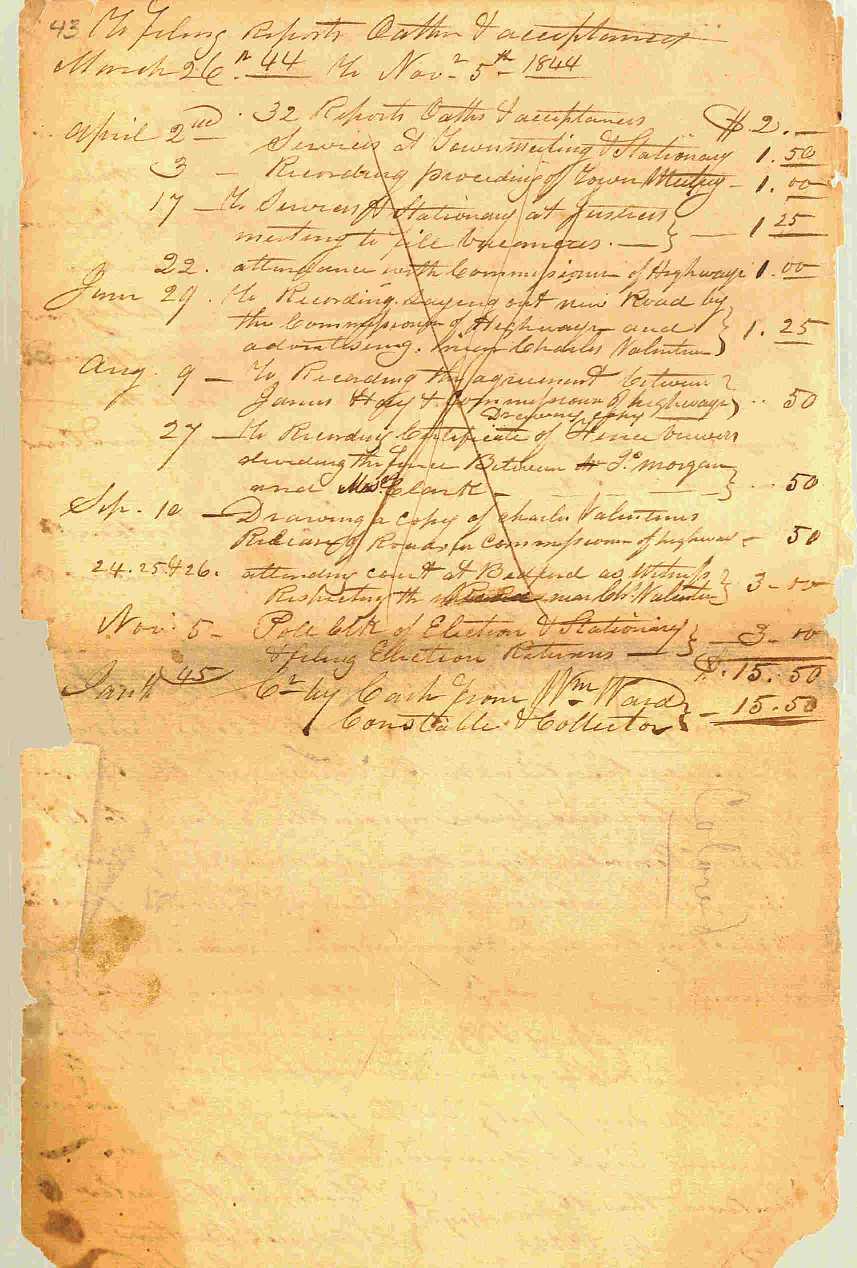 43 To Filing Reports Oaths & acceptances
March 26th 44 to Novr 5th 1844
32 Reports Oaths & acceptances $2.—
April 2nd Services at Townmeeting & Stationary 1.50
3 — Recording proceding of Town Meeting — 1.00
17 — To Services & Stationary at Justices
meeting to fill vacancies. — } — 1 25
22. attendance with Commissioner of Highways 1.00
June 29. To Recording Laying out new Road by
the Commissioners of Highways and
advertising. near Charles Valentine } 1.25
Aug. 9 — To Recording the agreement between
James Hay & Commissioner of highways } .. 50
Drawing copy
27 — To Recording Certificate of Fence viewers
dividing the fence Between Morgan
and Clark — } .. 50
Sep. 10 — Drawing a copy of Charles Valentines
of Road for Commissioner of highway — 50
24. 25. & 26. attending court at Bedford as witness
Respecting the Road near Ch. Valentine } 3 - 00
Nov. 5 — Poll Clk of Election & Stationary
& filing Election Returns — } — 3 - 00
$.15.50
45 Cr by Cash from Wm Ward
Constable & Collector } — 15.50
Colored